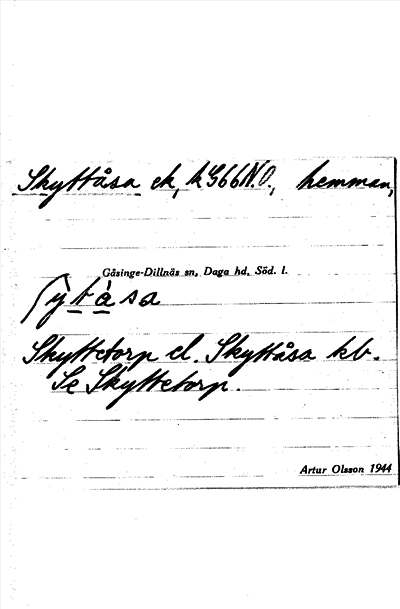 Skyttåsa ek, k G66 N.O., hemman,
Gåsinge-Dillnäs sn, Daga hd, Söd. l.
ʃỳtȧ̀sa
Skyttetorp el. Skyttåsa kb.
Se Skyttetorp.
Artur Olsson 1944